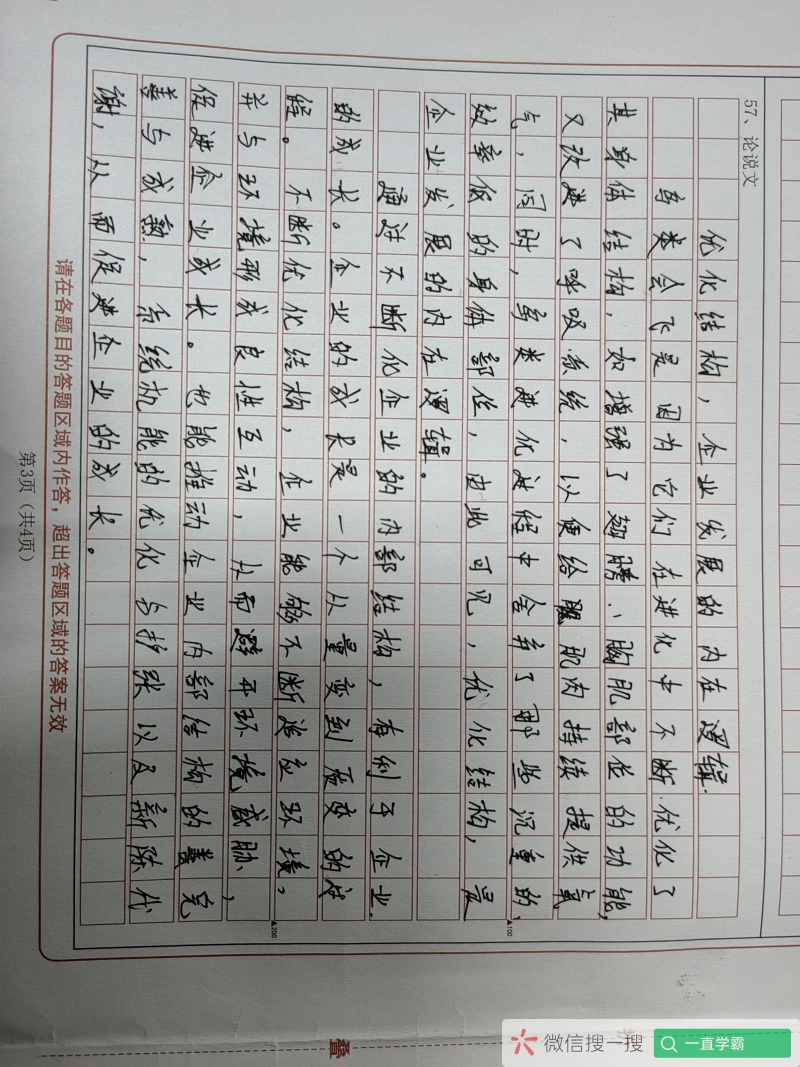 57、论说文
优化结构，企业发展的内在逻辑.
鸟类会飞是因为它们在进化中不断优化了
其身体结构，如增强了翅膀、胸肌部位的功能，
又改进了呼吸系统，以便给肌肉持续提供氧
气，同时，鸟类进化过程中舍弃了那些沉重的、
效率低的身体部位，由此可见，优化结构，是
企业发展的内在逻辑。
通过不断化企业的内部结构，有利于企业
的成长。企业的成长是一个从量变到质变的过
程。不断优化结构，企业能够不断适应环境，
并与环境形成良性互动，从而避开环境威胁，
促进企业成长。也能推动企业内部结构的完
善与成熟，系统机能的优化与扩张以及新陈代
谢，从而促进企业的成长。
▲100
▲200
请在各题目的答题区域内作答，超出答题区域的答案无效
第3页（共4页）
叠
微信搜一搜
一直学霸